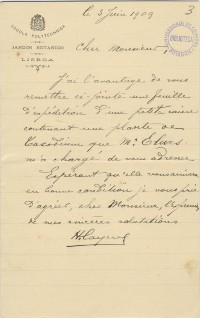 ESCOLA POLYTECHNICA
JARDIM BOTANICO
LISBOA
le 3 Juin 1909
3
Cher Monsieur,
J'ai l'avantage de vous
remettre ci-jointe une feuille
d'expédition d'une petite caisse
contenant une plante de
que Mr.
m'a chargé de vous adresser
Espérant qu'elle vous arrivera
en bonne condition je vous prie
d'agréer, cher Monsieur,
de mes sincères salutations
H. Cayeux